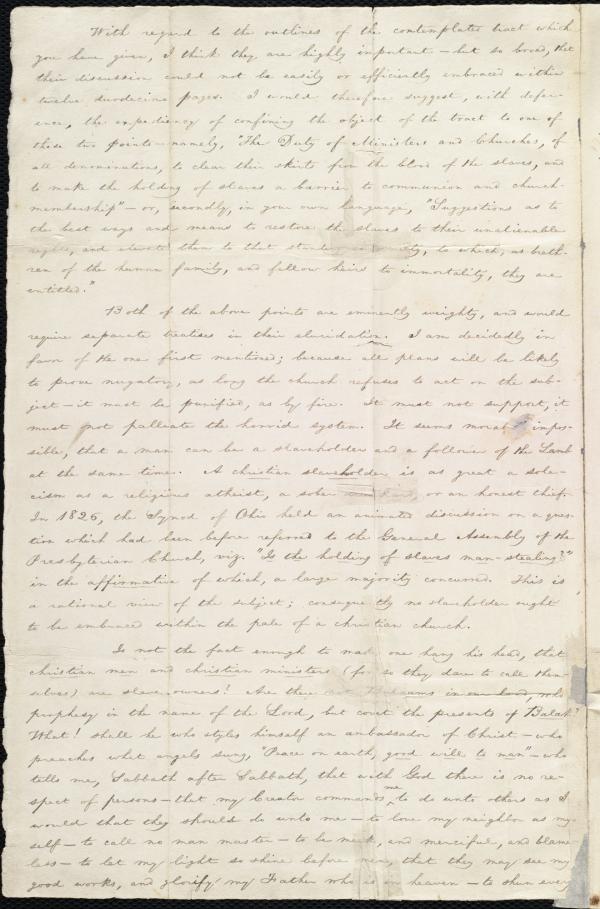 With regard to the outlines of the contemplated tract which
you have given, I think they are highly important – but so broad, that
their discussion could not be easily or efficiently embraced within
twelve duodecimo pages. I would therefore suggest, with defer-
ence, the expediency of confining the object of the tract to one of
these two points – namely, "The Duty of Ministers and Churches, of
all denominations, to clear their skirts from the blood of the slaves, and
to make the holding of slaves a barrier to communion and church-
membership" – or, secondly, in your own language, "Suggestions as to
the best ways and means to restore the slaves to their unalienable
rights, and elevate them to that standing in society, to which, as breth-
ren of the human family, and fellow heirs to immortality, they are
entitled."
Both of the above points are eminently weighty, and would
require separate treatises in their elucidation. I am decidedly in
favor of the one first mentioned; because all plans will be likely
to prove nugatory, as long the church refuses to act on the sub-
ject – it must be purified, as by fire. It must not support, it
must not palliate the horrid system. It seems morally impos-
sible, that a man can be a slaveholder and a follower of the Lamb
at the same time. A christian slaveholder is as great a sole-
cism as a religious atheist, a sober drunkard, or an honest thief.
In 1826, the Synod of Ohio held an animated discussion on a ques-
tion which had been before referred to the General Assembly of the
Presbyterian Church, viz. "Is the holding of slaves man-stealing?"
in the affirmative of which, a large majority concurred. This is
a rational view of the subject; consequently no slaveholder ought
to be embraced within the pale of a christian church.
Is not the fact enough to make one hang his head, that
christian men and christian ministers (for so they dare to call them-
selves) are slave owners! Are there not Balaams in our land, who
prophesy in the name of the Lord, but covet the presents of Balak?
What! shall he who styles himself an ambassador of Christ – who
preaches what angels sung, "Peace on earth, good will to man" – who
tells me, Sabbath after Sabbath, that with God there is no re-
spect of persons – that my Creator commands me to do unto others as I
would that they should do unto me – to love my neighbor as my-
self – to call no man master – to be meek, and merciful, and blame
less – to let my light so shine before men, that they may see my
good works, and glorify my Father who is in heaven – to shun every